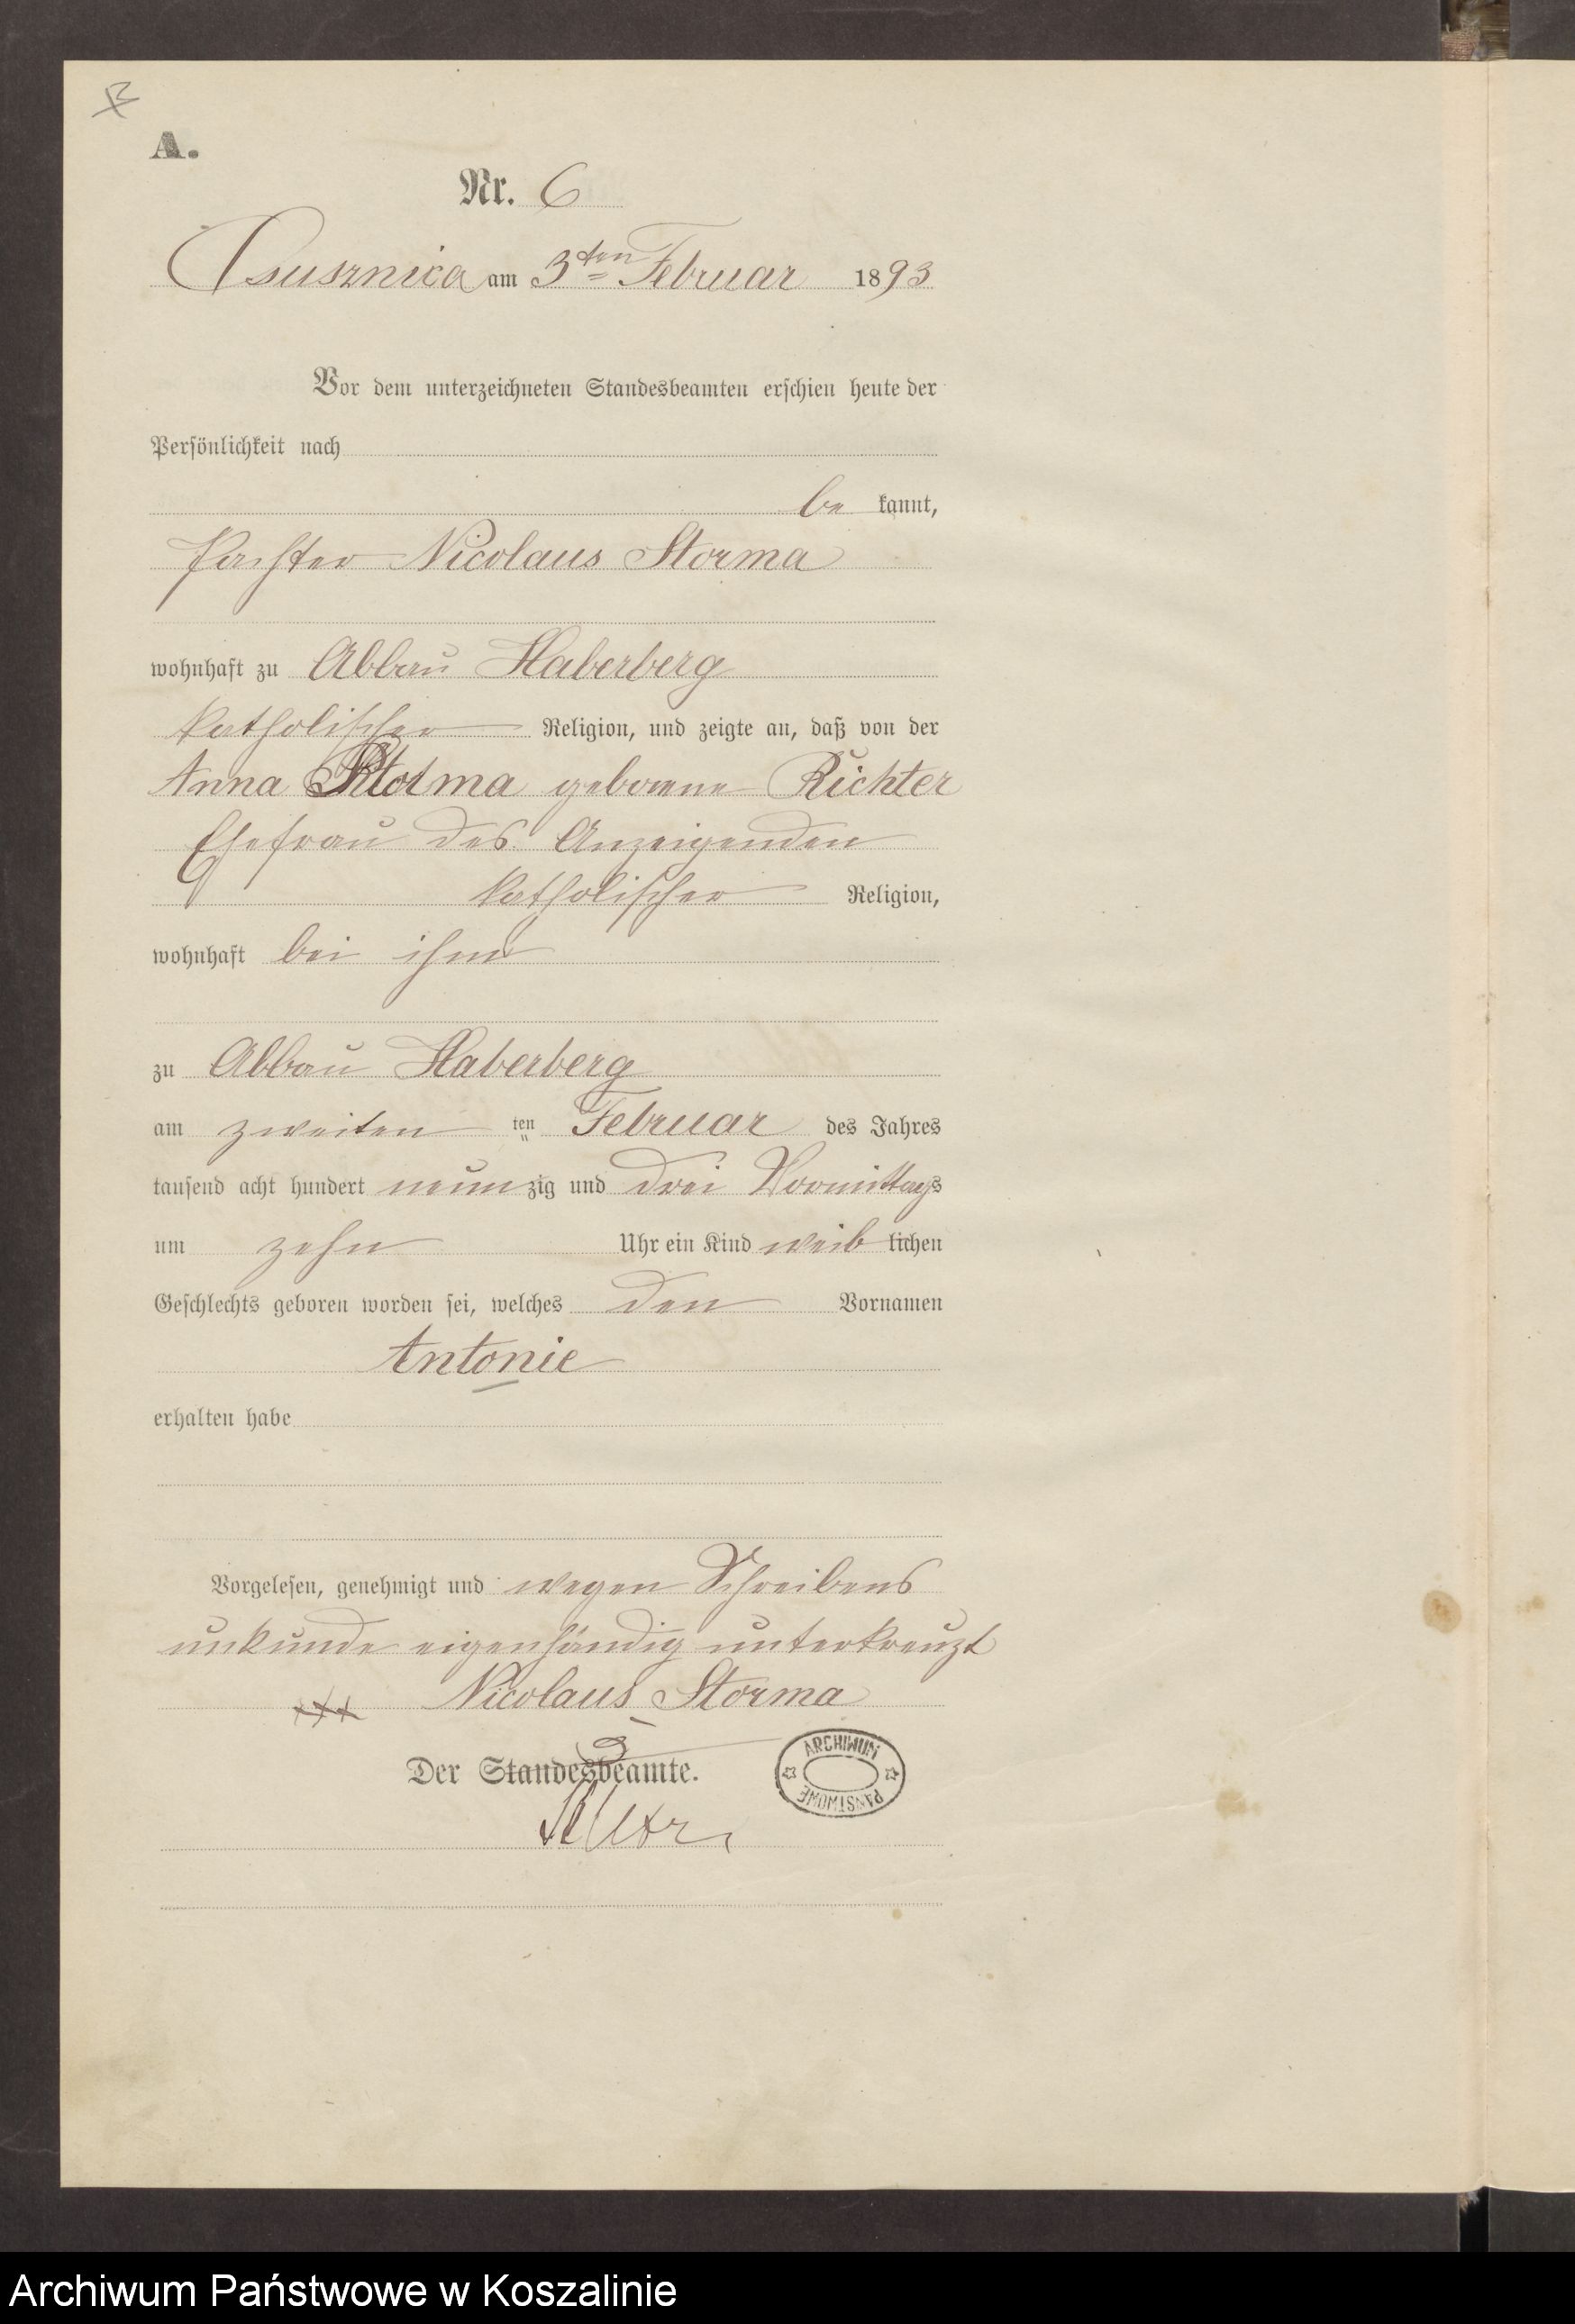 A.
Nr. 6
am 3ten Februar 1893
Vor dem unterzeichneten Standesbeamten erschien heute der
Persönlichkeit nach
be kannt,
Pachter Nicolaus Storma
wohnhaft zu Abbau Haberberg
katholischer Religion, und zeigte an, daß von der
Anna Storma geborene Richter
Ehefrau des Anzeigenden
katholischer Religion,
wohnhaft bei ihm
zu Abbau Haberberg
am zweiten ten Februar des Jahres
tausend acht hundert neunzig und drei Vormittags
um zehn Uhr ein Kind weiblichen
Geschlechts geboren worden sei, welches den Vornamen
Antonie
erhalten habe
Vorgelesen, genehmigt und wegen Schreibens
unkunde eigenhändig unterkreuzt
+++ Nicolaus Storma
Der Standesbeamte.
ARCHIWUM PAŃSTWOWE
Archiwum Państwowe w Koszalinie